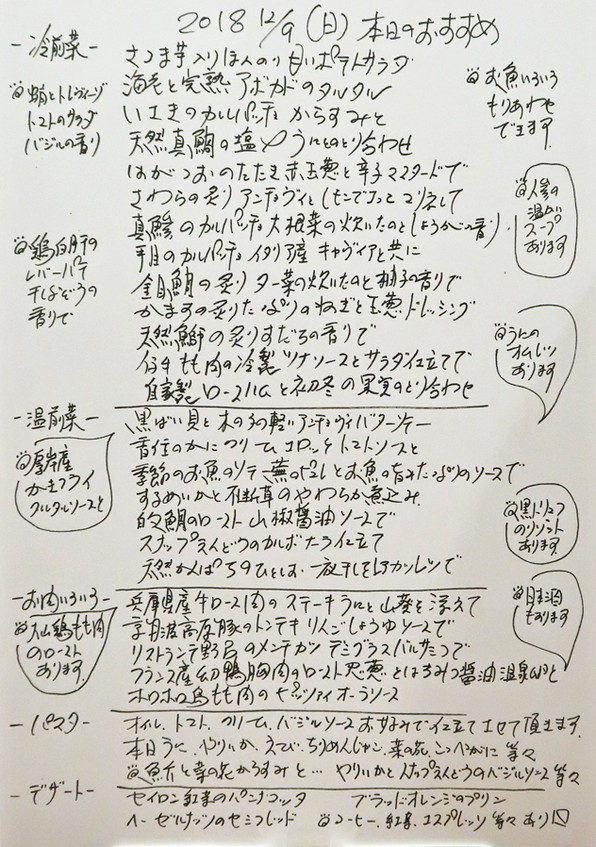 2018 12/9 (日) 本日のおすすめ
-冷前菜-
さつま芋入りほんのり甘いポテトサラダ
海老と完熟アボカドのタルタル
いさきのカルパッチョ からすみと
天然真鯛の塩〆 うにとのとり合わせ
はがつおのたたき 赤玉葱と辛子マスタードで
さわらの炙り アンチョヴィと
真鯵のカルパッチョ 大根菜の炊いたのと しょうがの香り
平目のカルパッチョ イタリア産 キャヴィアと共に
金目鯛の炙り ター菜の炊いたのと柚子の香りで
かますの炙り たっぷりのねぎと玉葱ドレッシング
天然鰤の炙り すだちの香りで
仔牛もも肉の冷製 ツナソースとサラダ仕立てで
自家製ロースハムと初冬の果実のとり合わせ
蛸とトレヴィーゾ
トマトのサラダ
バジルの香り
鶏白肝の
レバーパテ
干しぶどうの
香りで
お魚いろいろ
もりあわせ
できます
人参の
温かい
スープ
あります
うにの
オムレツ
あります
-温前菜-
黒ばい貝と木の子の軽いアンチョヴィバターソテー
香住のかにクリームコロッケ トマトソースと
季節のお魚のソテー 蕪のピュレとお魚の旨みたっぷりのソースで
するめいかと不断草のやわらか煮込み
的鯛のロースト 山椒醤油ソースで
スナップえんどうのカルボナーラ仕立て
天然かんぱちのひとしお 一夜干しをレアカツレツで
厚岸産
かきフライ
タルタルソースと
黒トリュフ
のリゾット
あります
-お肉いろいろ-
兵庫県産牛ロース肉のステーキ うにと山葵を添えて
京丹波高原豚のトンテキ りんごしょうゆソースで
リストランテ野呂のメンチカツ デミグラスバルサミコで
フランス産幼鴨胸肉のロースト 忍葱とはちみつ醤油 温泉卵と
ホロホロ鳥もも肉のピッツァイオーラソース
大山鶏もも肉
のロースト
あります
日本酒
もあります
-パスタ-
オイル、トマト、クリーム、バジルソース お好みで仕立てさせて頂きます。
本日 うに、やりいか、えび、ちりめんじゃこ、菜の花、こっぺがに 等々
魚介と菜の花からすみと… やりいかとスナップえんどうのバジルソース 等々
-デザート-
セイロン紅茶のパンナコッタ ブラッドオレンジのプリン
ヘーゼルナッツのセミフレッド コーヒー、紅茶、エスプレッソ 等々あり〼